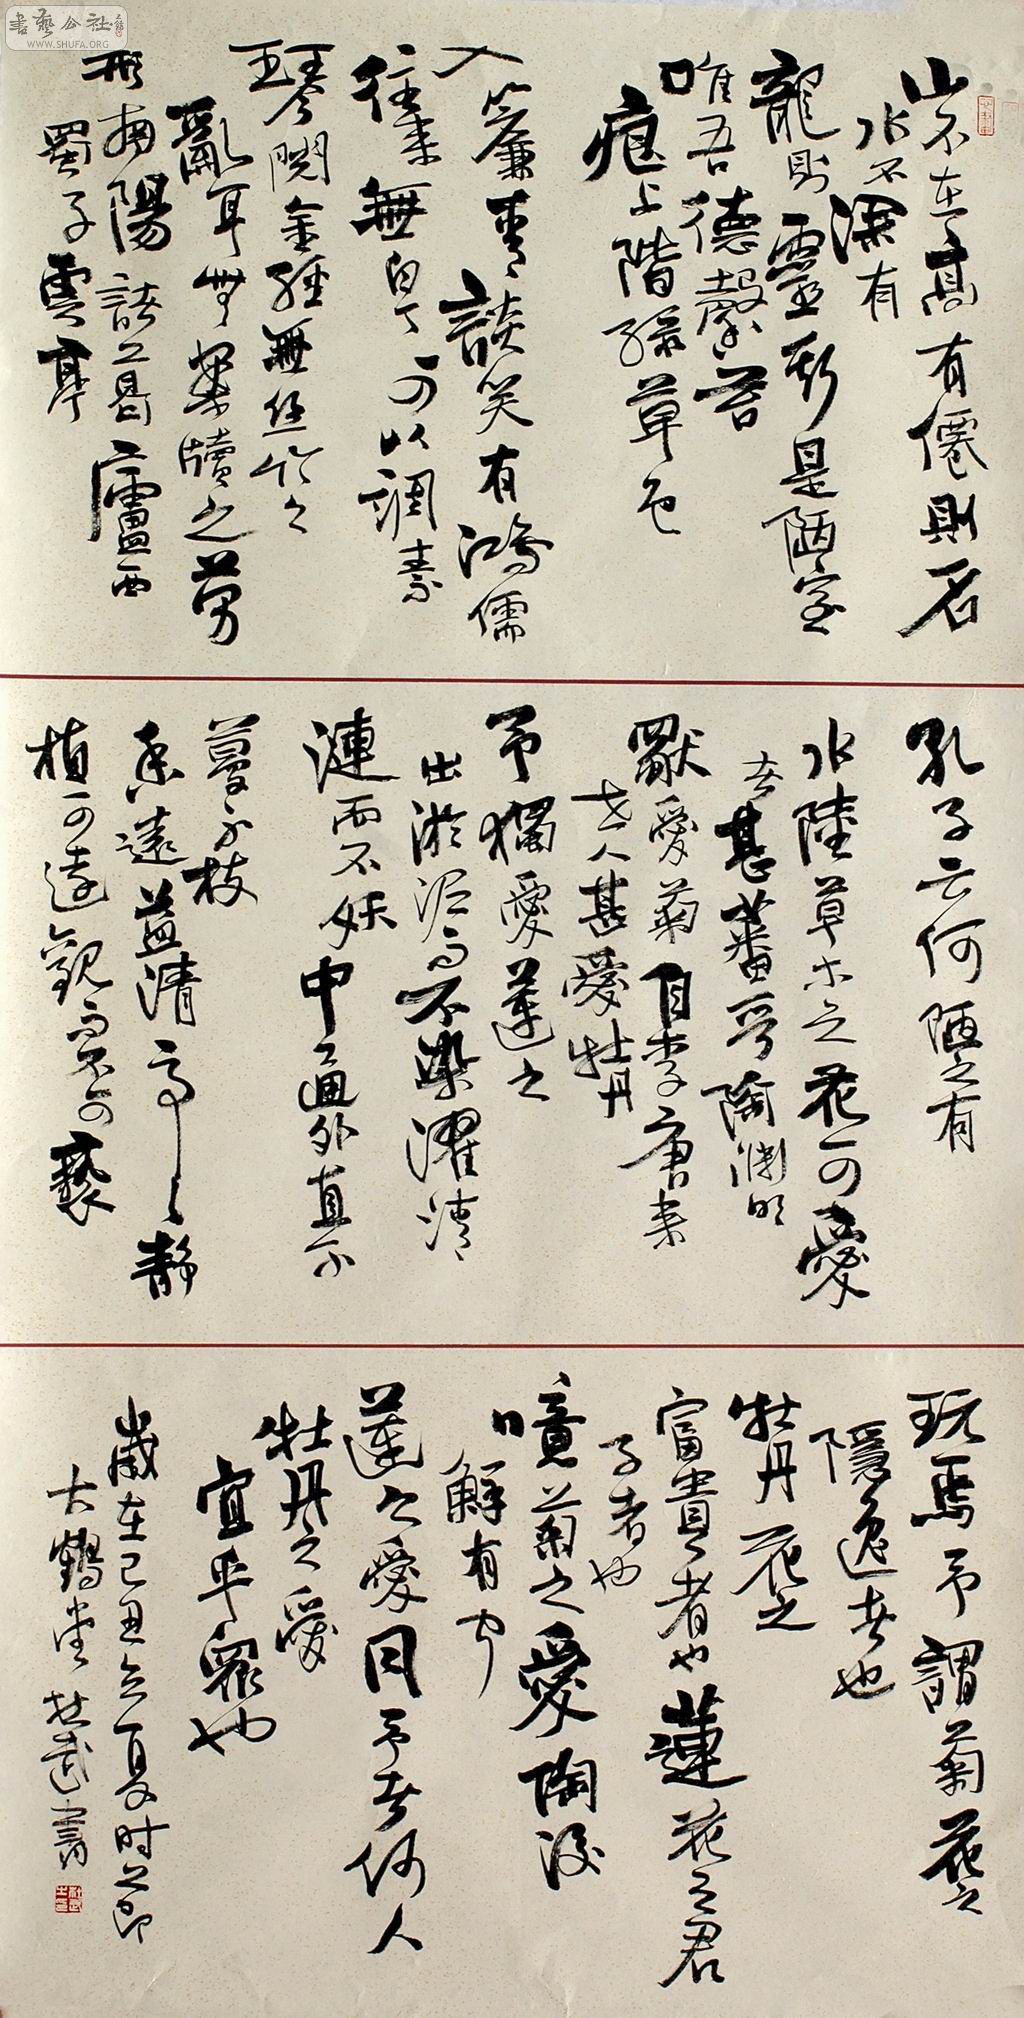 書藝公社
WWW.SHUFA.ORG
山不在高有僊則名
水不深有
龍則靈斯是陋室
唯吾德馨苔
痕上階綠草色
入簾青談笑有鴻儒
往來無白丁可以調素
琴閱金經無絲竹之
亂耳無案牘之勞
形南陽諸葛廬西
蜀子雲亭
孔子云何陋之有
水陸草木之花可愛
者甚蕃晉陶淵明
獨愛菊自李唐來
世人甚愛牡丹
予獨愛蓮之
出淤泥而不染濯清
漣而不妖中通外直不
蔓不枝
香遠益清亭〻靜
植可遠觀而不可褻
玩焉予謂菊花之
隱逸者也
牡丹花之
富貴者也蓮花之君
子者也
噫菊之愛陶後
鮮有聞
蓮之愛同予者何人
牡丹之愛
宜乎眾也
歲在己丑立夏時節
大鶴堂書